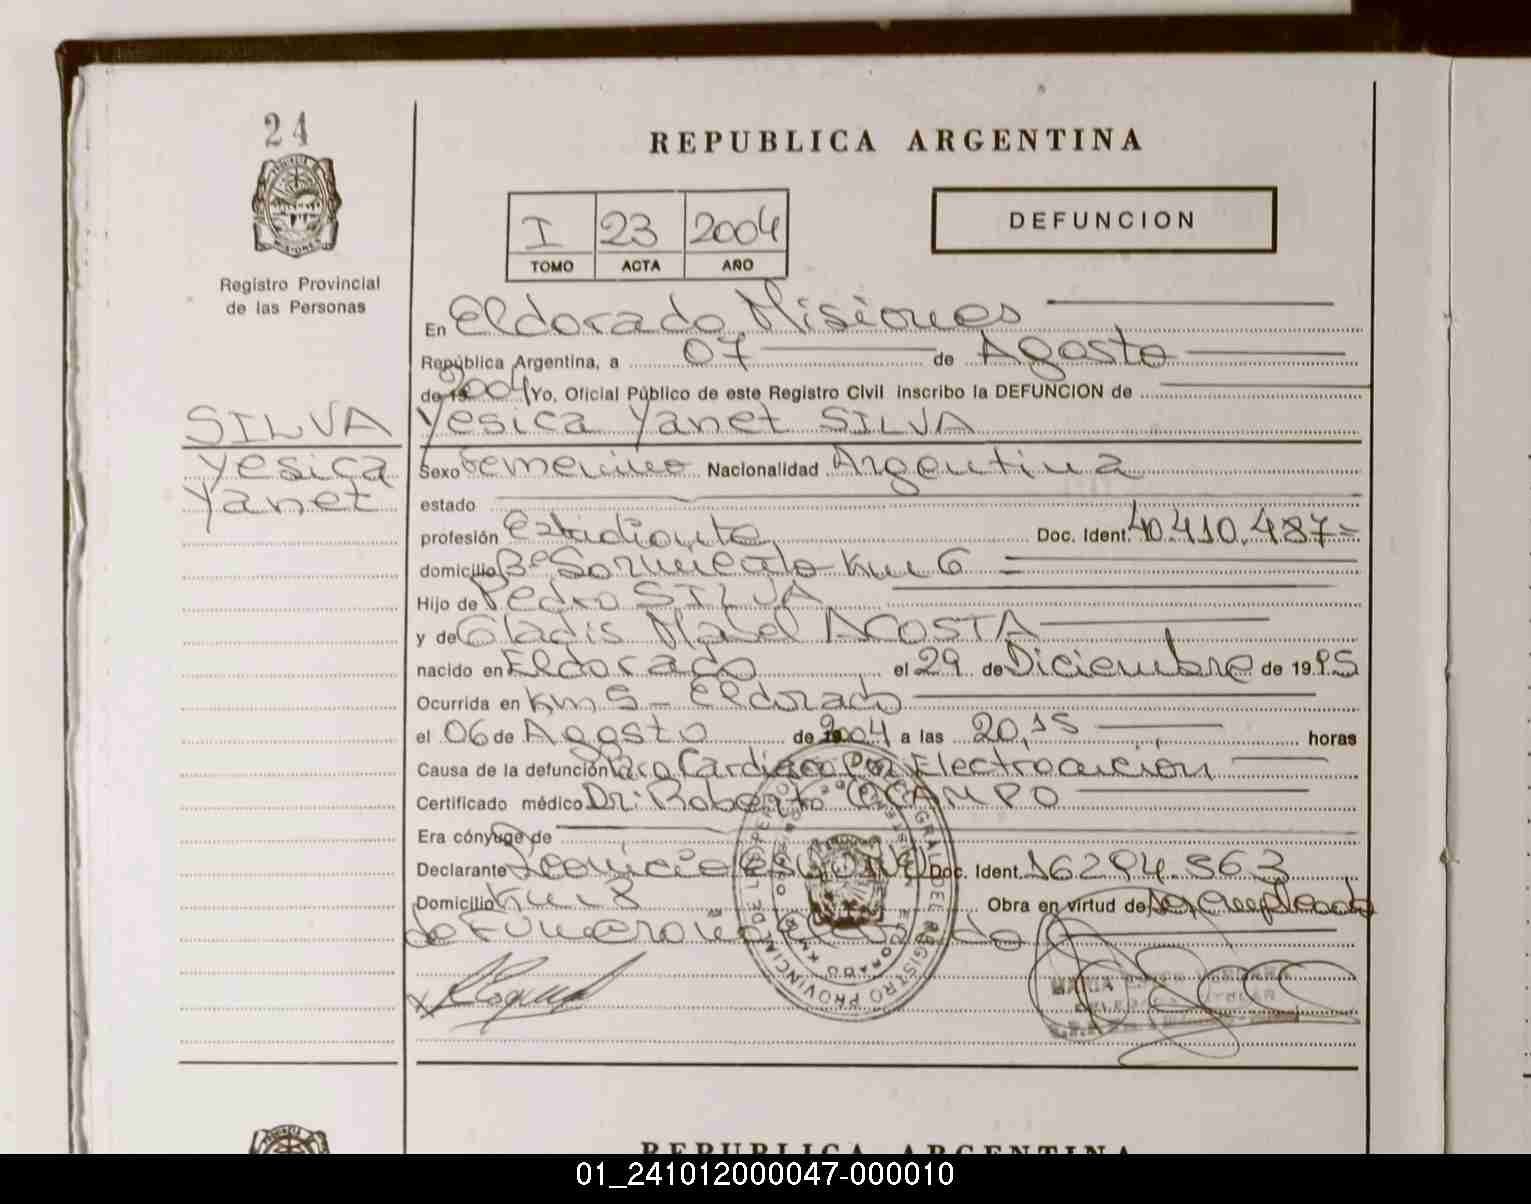 24
REPUBLICA ARGENTINA
I 23 2004
TOMO ACTA AÑO
DEFUNCION
Registro Provincial
de las Personas
En Eldorado, Misiones
República Argentina, a 07 de Agosto
de 2004 Yo, Oficial Público de este Registro Civil inscribo la DEFUNCION de
SILVA
Yesica Yanet SILVA
Yesica
Yanet
Sexo Femenino Nacionalidad Argentina
estado
profesión Estudiante Doc. Ident. 40.410.487=
domicilio Bº Sarmiento Km 6
Hijo de Pedro SILVA
y de Gladis Mabel ACOSTA
nacido en Eldorado el 29 de Diciembre de 1995
Ocurrida en Km 5 - Eldorado
el 06 de Agosto de 2004 a las 20,15 horas
Causa de la defunción Paro Cardiaco Por Electrocución
Certificado médico Dr: Roberto OCAMPO
Era cónyuge de
Declarante Doc. Ident. 16284.563
Domicilio Km 8 Obra en virtud de ser empleado
de Funeraria
REGISTRO PROVINCIAL DE
ELDORADO KM
REPUBLICA ARGENTINA
01_241012000047-000010